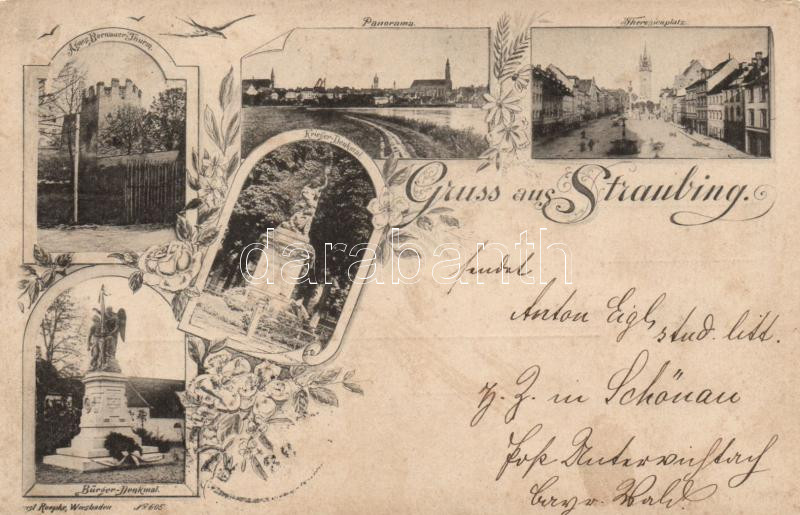 Agnes Bernauer-Thurm.
Panorama.
Theresienplatz.
Krieger-Denkmal.
Gruss aus Straubing.
darabanth
sendet
Anton Eigl
stud. litt.
z. Z. in Schönau
Post Unterviechtach
bayr. Wald.
Bürger-Denkmal.
Roepke, Wiesbaden No 605